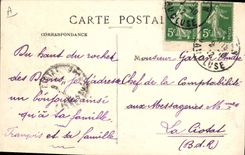 A
CARTE POSTALE
CORRESPONDANCE
Du haut du rocher
des Doms, je t'adresse
un bonjour ainsi
qu'à ta famille.
François et sa famille
Monsieur
Chef de la Comptabilité
aux Messageries Mmes
La Ciotat
(B.d.R)
5
5